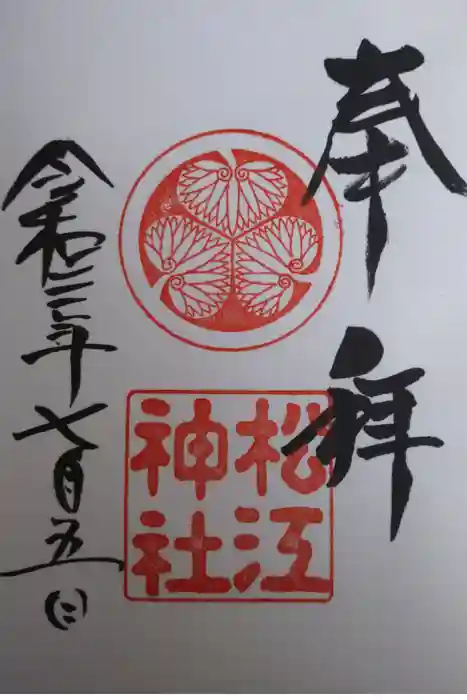 奉拝
松江
神社
令和三年七月五日